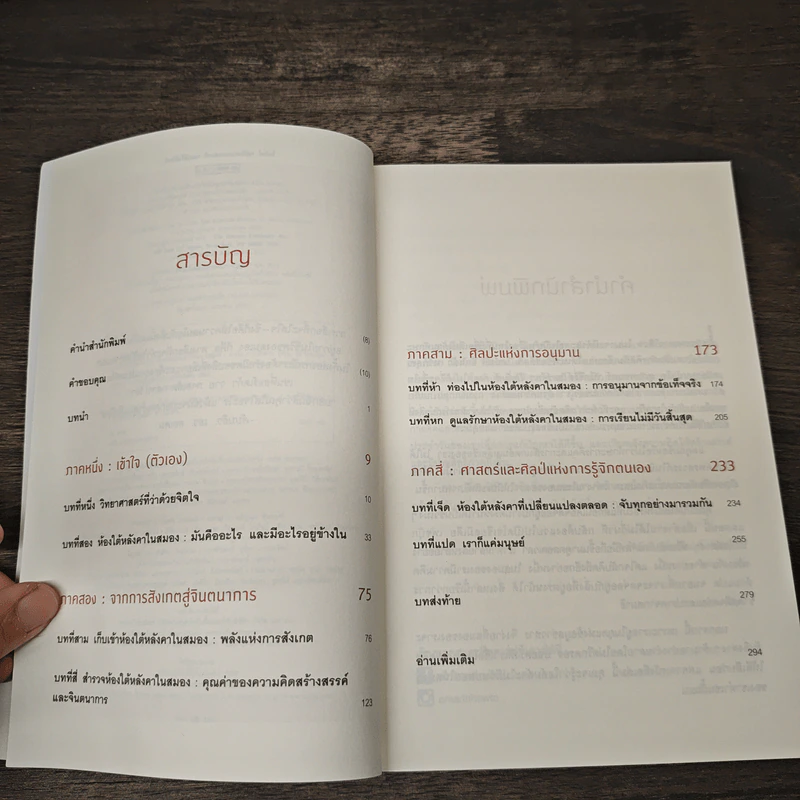 สารบัญ
คำนำสำนักพิมพ์ (8)
คำขอบคุณ (10)
บทนำ 1
ภาคหนึ่ง : เข้าใจ (ตัวเอง) 9
บทที่หนึ่ง วิทยาศาสตร์ที่ว่าด้วยจิตใจ 10
บทที่สอง ห้องใต้หลังคาในสมอง : มันคืออะไร และมีอะไรอยู่ข้างใน 33
ภาคสอง : จากการสังเกตสู่จินตนาการ 75
บทที่สาม เก็บเข้าห้องใต้หลังคาในสมอง : พลังแห่งการสังเกต 76
บทที่สี่ สำรวจห้องใต้หลังคาในสมอง : คุณค่าของความคิดสร้างสรรค์
และจินตนาการ 123
ภาคสาม : ศิลปะแห่งการอนุมาน 173
บทที่ห้า ท่องไปในห้องใต้หลังคาในสมอง : การอนุมานจากข้อเท็จจริง 174
บทที่หก ดูแลรักษาห้องใต้หลังคาในสมอง : การเรียนไม่มีวันสิ้นสุด 205
ภาคสี่ : ศาสตร์และศิลป์แห่งการรู้จักตนเอง 233
บทที่เจ็ด ห้องใต้หลังคาที่เปลี่ยนแปลงตลอด : จับทุกอย่างมารวมกัน 234
บทที่แปด เราก็แค่มนุษย์ 255
บทส่งท้าย 279
อ่านเพิ่มเติม 294